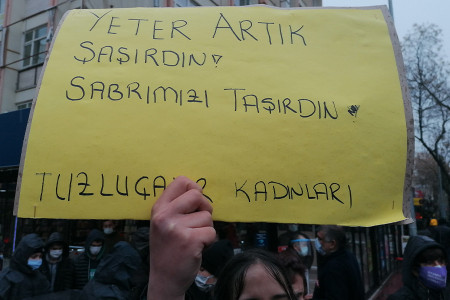 YETER ARTIK
ŞAŞIRDIN!
SABRIMIZI TAŞIRDIN!
KADINLARI